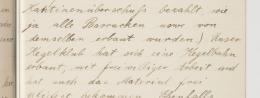 Kantinenüberschuß bezahlt, wie
ja alle Barracken usw. von
demselben erbaut wurden) Unser
Kegelklub hat sich eine Kegelbahn
erbaut, mit freiwilliger Arbeit und
hat auch das Material frei
geliefert bekommen. Ebenfalls